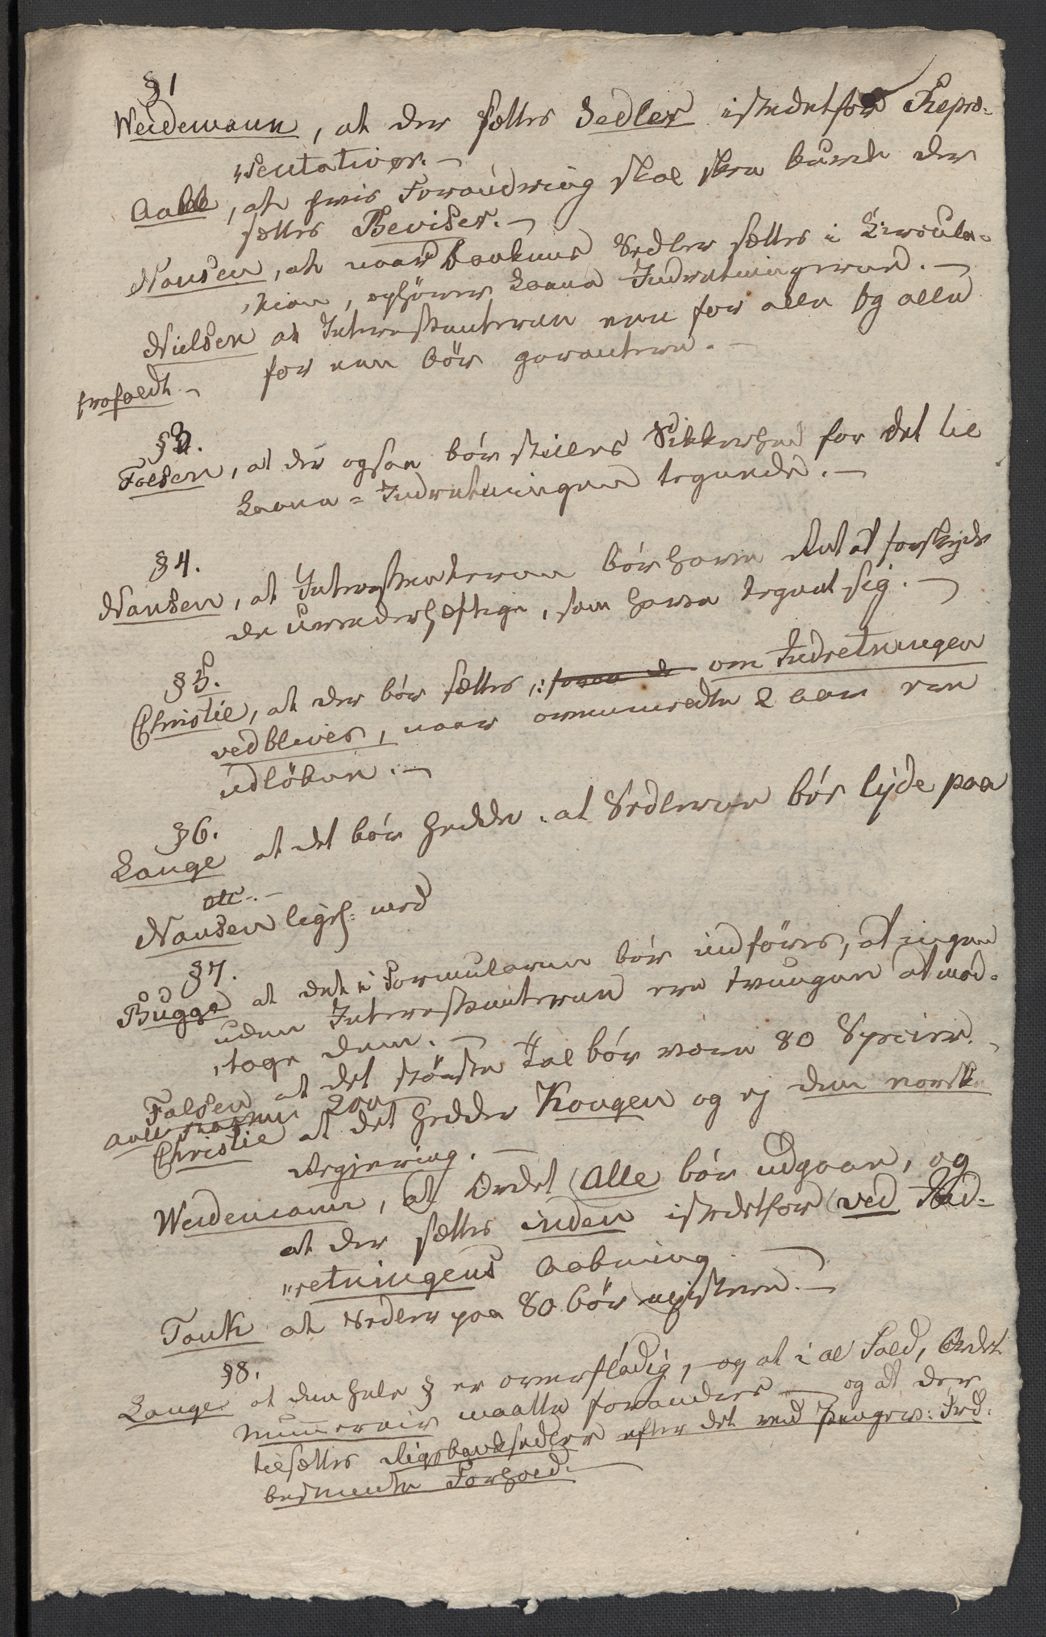 §1
Weidemann, at der sættes Sedler istedetfor Repræ-
sentativer. —
Aall, at hvis Forandring skal skee burde der
sættes Beviser. —
Nansen, at naar bankens Sedler sættes i Circula-
tion, ophører Laane Indretningerne. —
Nielsen at Interessenterne een for alle og alle
for een bör garantere. —
frafaldt —
§3.
Falsen, at der ogsaa bör stilles Sikkerhed for det til
Laane-Indretningen tegnede. —
§4.
Nansen, at Interessenterne bör have Ret at forskyde
de uvederhæftige, som have tegnet sig. —
§5.
Christie, at der bör sættes, om Indretningen
vedblives, naar ommeldte 2 aar ere
udlöbne. —
§6.
Lange at det bör hedde, at Sedlerne bör lyde paa
etc. —
Nansen ligel: med
§7.
Bugge at det i Formularen bör indföres, at ingen
uden Interessenterne ere tvungen at mod-
tage dem. —
Falsen at det störste Tal bör være 80 Specier. —
Aall 200
Christie at det hedder Kongen og ej den norske
Regjering. —
Weidemann, at Ordet (Alle bör udgaae, og
at der sættes inden istedetfor (ved Ind-
retningens Aabning. —
Tank at Sedler paa 80 bör existere. —
§8.
Lange at den hele § er overflödig, og at i al Fald, Ordet
Numerair maatte forandres — og at der
tilsættes Rigsbanksedler efter det ved Penges: Frd.
bestemte Forhold. —